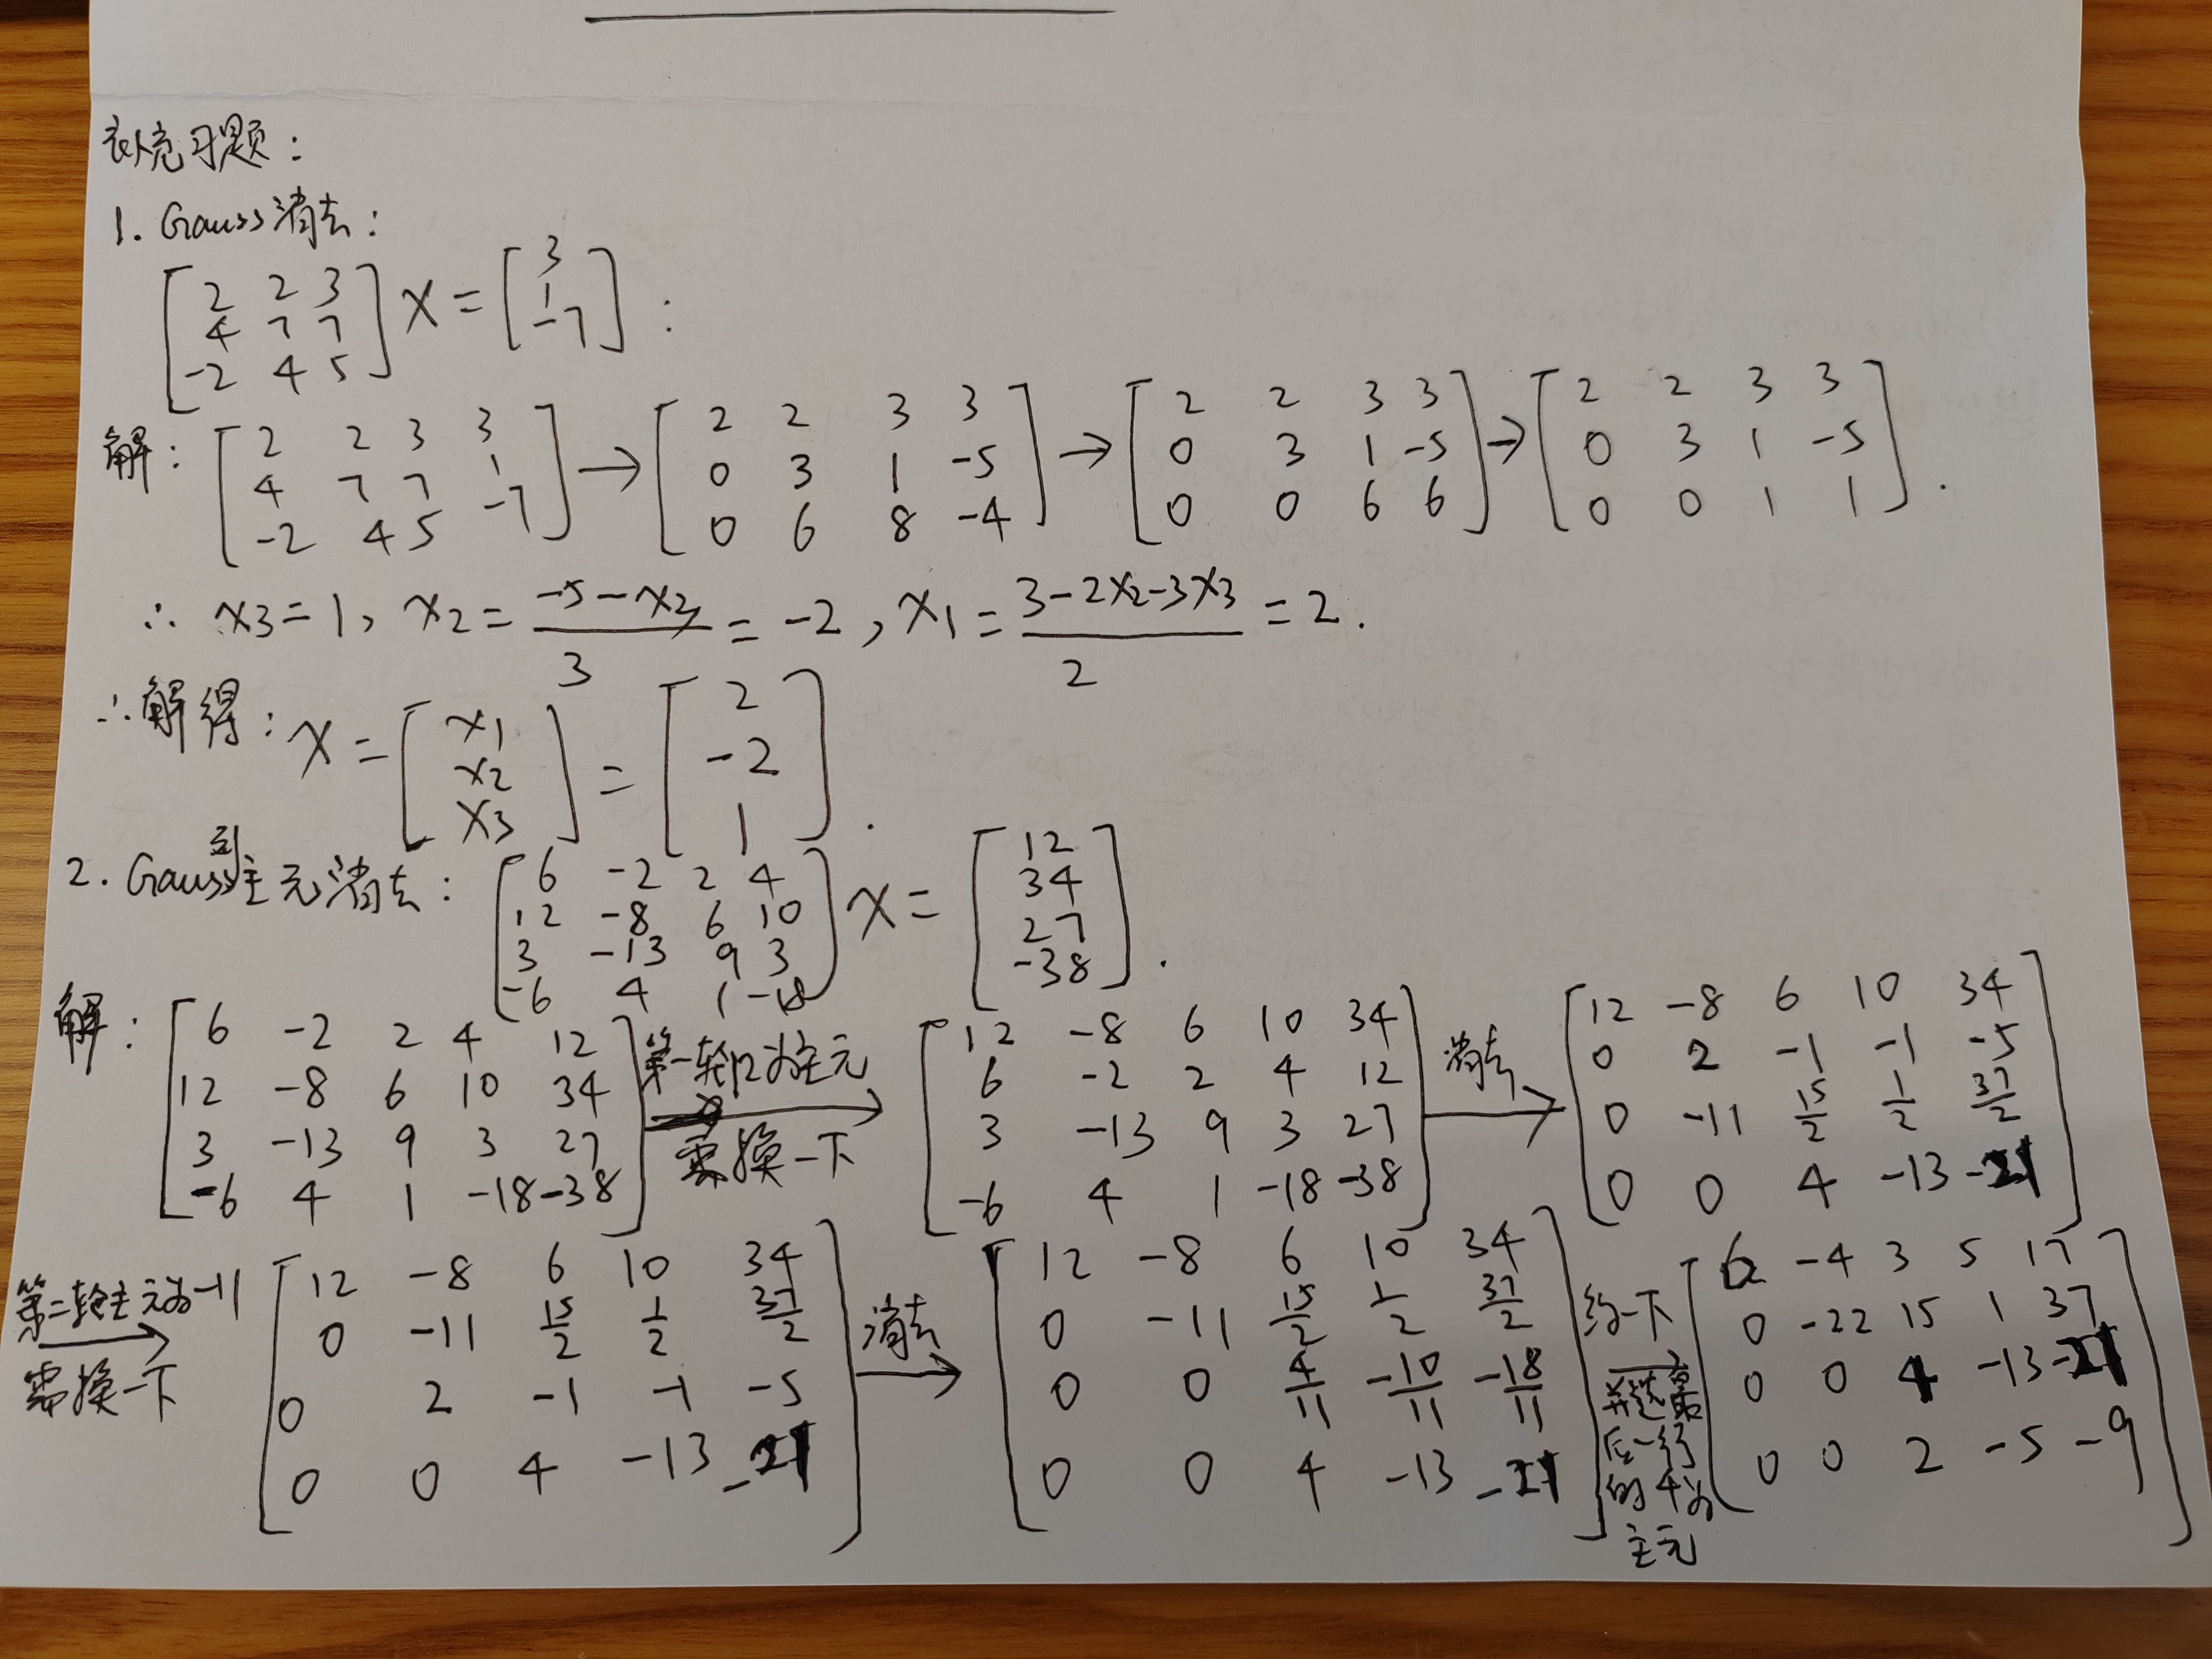 补充习题:
1. Gauss消去:
[2 2 3; 4 7 7; -2 4 5] X = [3; 1; -7] :
解: [2 2 3 3; 4 7 7 1; -2 4 5 -7] → [2 2 3 3; 0 3 1 -5; 0 6 8 -4] → [2 2 3 3; 0 3 1 -5; 0 0 6 6] → [2 2 3 3; 0 3 1 -5; 0 0 1 1].
∴ x3=1, x2=(-5-x3)/3=-2, x1=(3-2x2-3x3)/2=2.
∴解得: X=[x1; x2; x3]=[2; -2; 1].
2. Gauss列主元消去: [6 -2 2 4; 12 -8 6 10; 3 -13 9 3; -6 4 1 -18] X = [12; 34; 27; -38].
解: [6 -2 2 4 12; 12 -8 6 10 34; 3 -13 9 3 27; -6 4 1 -18 -38] 第一轮12为主元 需换一下 → [12 -8 6 10 34; 6 -2 2 4 12; 3 -13 9 3 27; -6 4 1 -18 -38] 消去 → [12 -8 6 10 34; 0 2 -1 -1 -5; 0 -11 15/2 1/2 37/2; 0 0 4 -13 -21]
第二轮主元为-11 需换一下 → [12 -8 6 10 34; 0 -11 15/2 1/2 37/2; 0 2 -1 -1 -5; 0 0 4 -13 -21] 消去 → [12 -8 6 10 34; 0 -11 15/2 1/2 37/2; 0 0 4/11 -10/11 -18/11; 0 0 4 -13 -21] 约一下 并选最后一行的4为主元 → [6 -4 3 5 17; 0 -22 15 1 37; 0 0 4 -13 -21; 0 0 2 -5 -9]